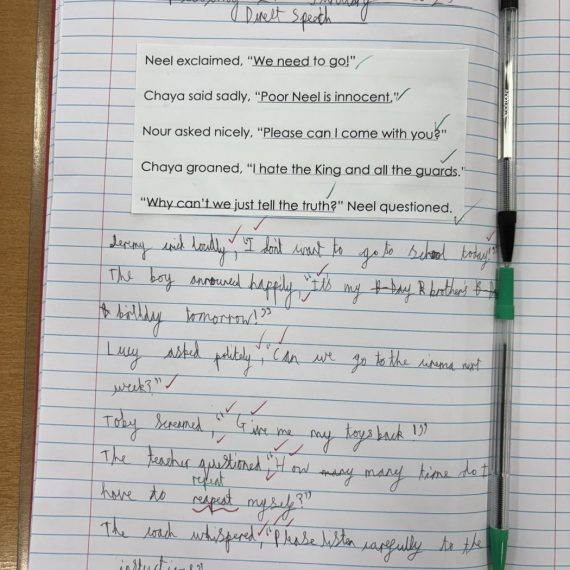 Direct Speech
Neel exclaimed, "We need to go!"
Chaya said sadly, "Poor Neel is innocent."
Nour asked nicely, "Please can I come with you?"
Chaya groaned, "I hate the King and all the guards."
"Why can't we just tell the truth?" Neel questioned.
Jeremy said loudly, "I don't want to go to school today!"
The boy announced happily, "It's my B-Day R brother's B-Da
birthday tomorrow!"
Lucy asked politely, "Can we go to the cinema next
week?"
Toby screamed, "Give me my toys back!"
The teacher questioned, "How many many time do I
repeat
have to reapeat myself?"
The coach whispered, "Please listen carefully to the